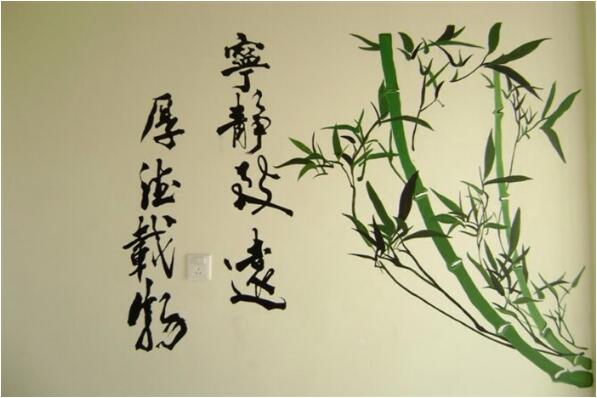 寧靜致遠
厚德載物